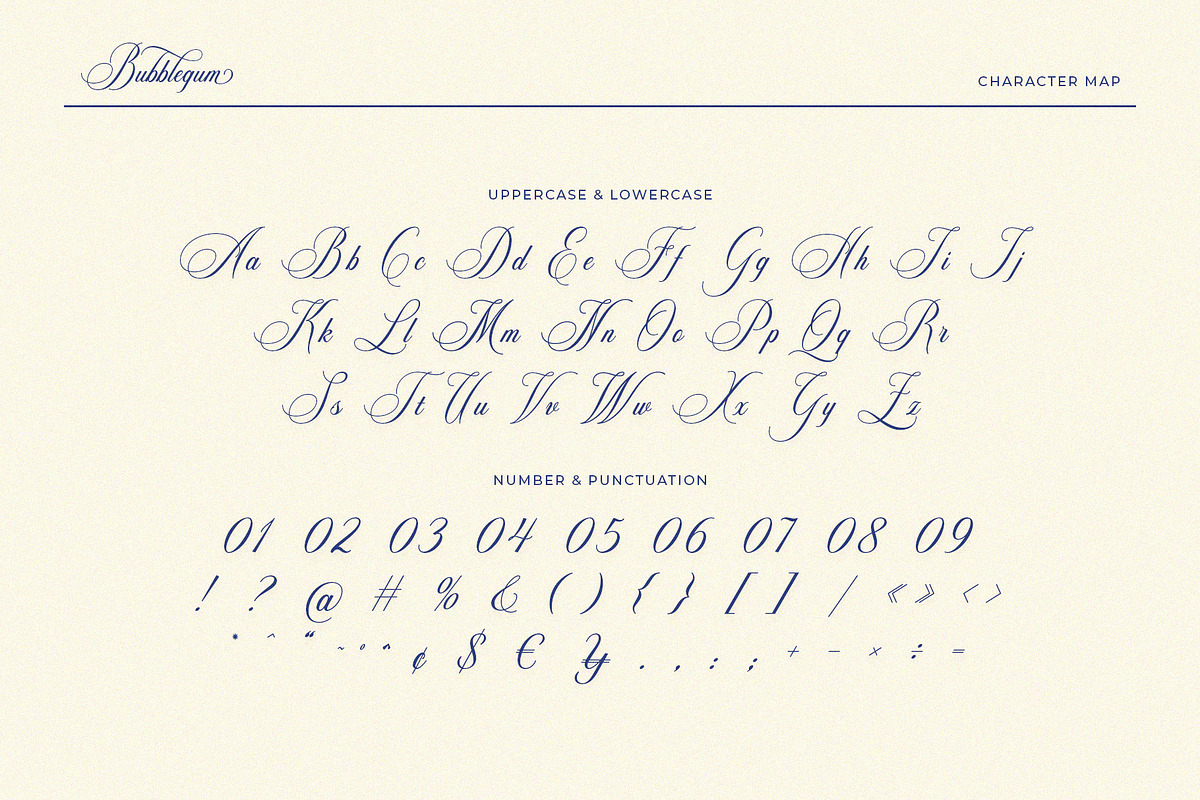 Bubblegum
CHARACTER MAP
UPPERCASE & LOWERCASE
Aa Bb Cc Dd Ee Ff Gg Hh Ii Jj
Kk Ll Mm Nn Oo Pp Qq Rr
Ss Tt Uu Vv Ww Xx Yy Zz
NUMBER & PUNCTUATION
01 02 03 04 05 06 07 08 09
! ? @ # % & ( ) { } [ ] / « » < >
* ^ “ ~ ° ¢ $ € ¥ . , : ; + − × ÷ =